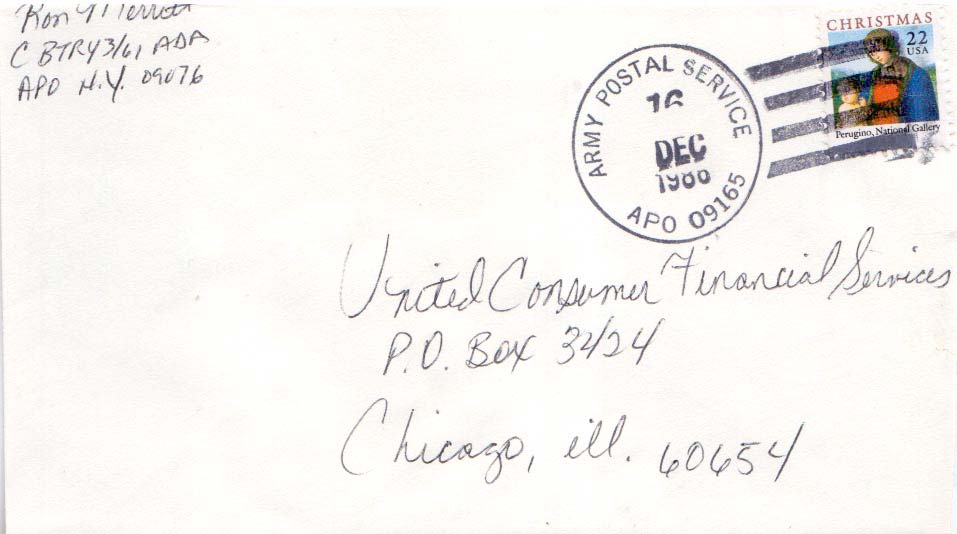 Ron
C BTRY 3/61 ADA
APO N.Y. 09076
ARMY POSTAL SERVICE
16
DEC
1986
APO 09165
CHRISTMAS
22
USA
Perugino, National Gallery
United Consumer Financial Services
P.O. Box 3424
Chicago, ill. 60654